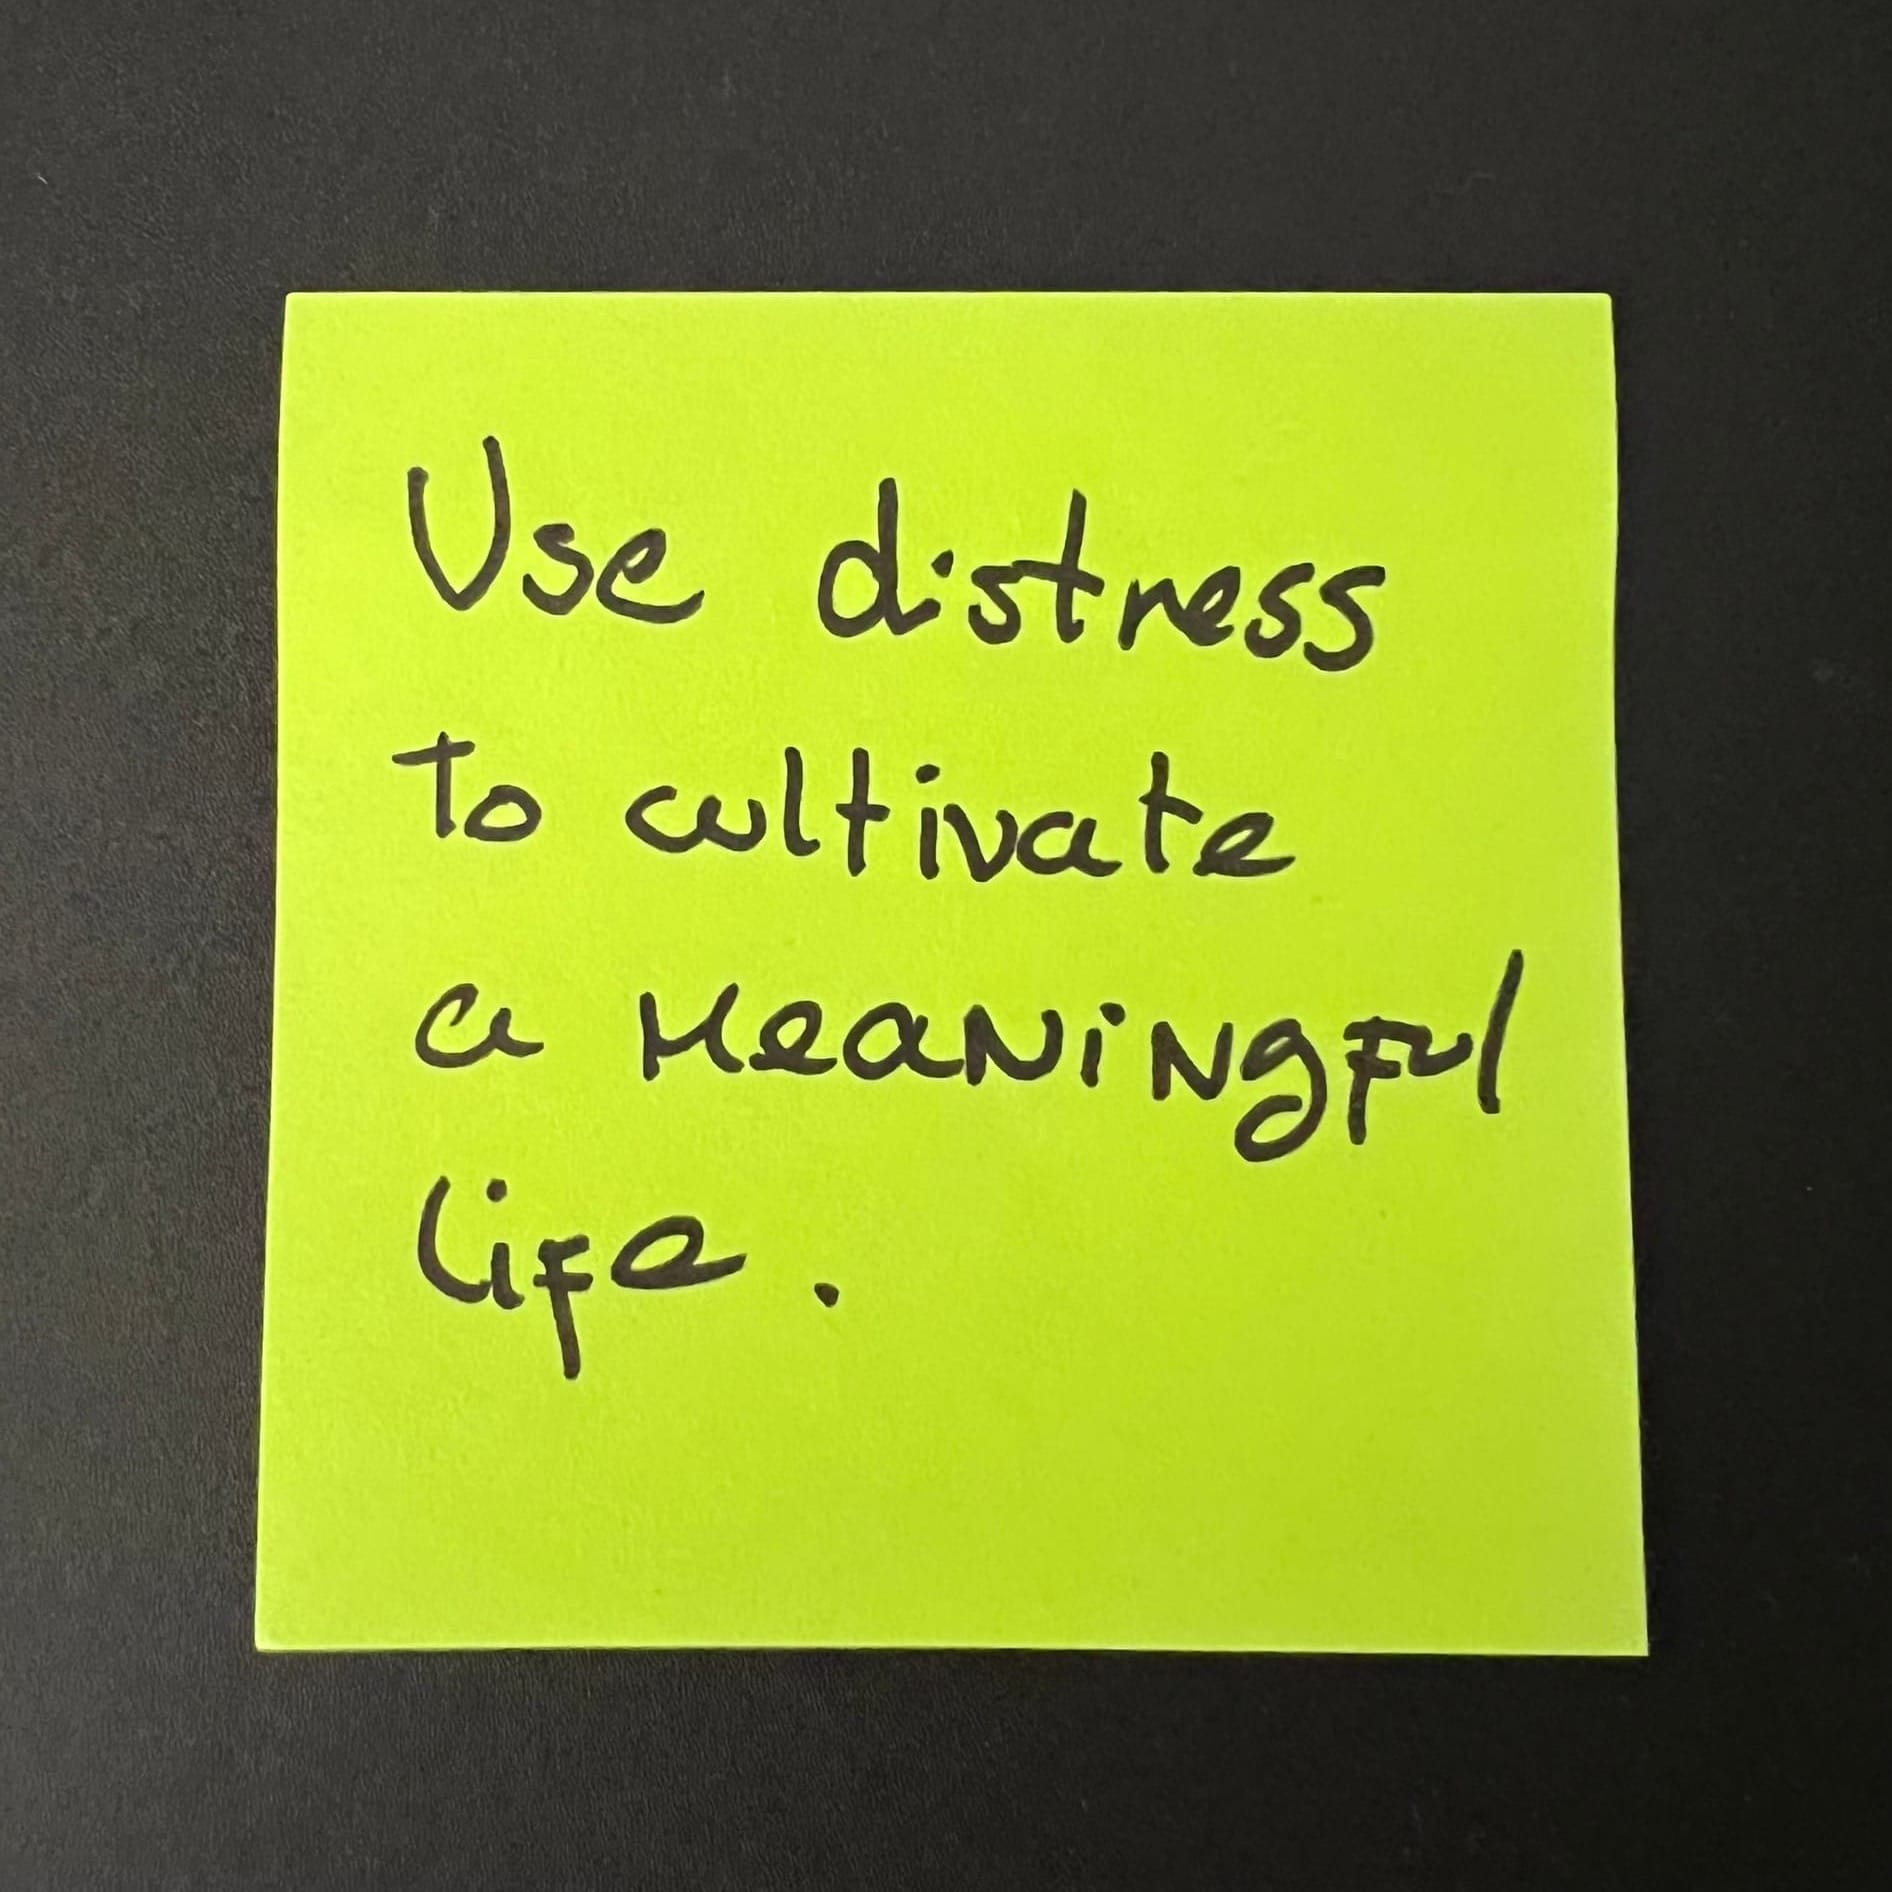 Use distress
to cultivate
a meaningful
life.